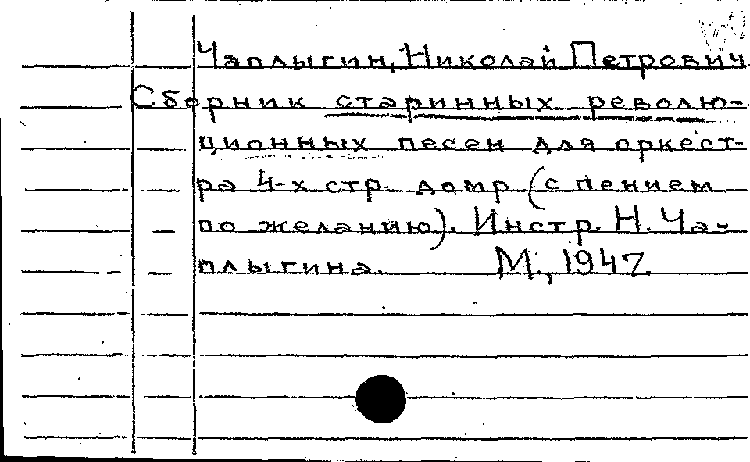 Чаплыгин, Николай Петрович
Сборник старинных револю-
ционных песен для оркест-
ра 4-х стр. домр (с пением
по желанию). Инстр. Н. Ча-
плыгина. М., 1947